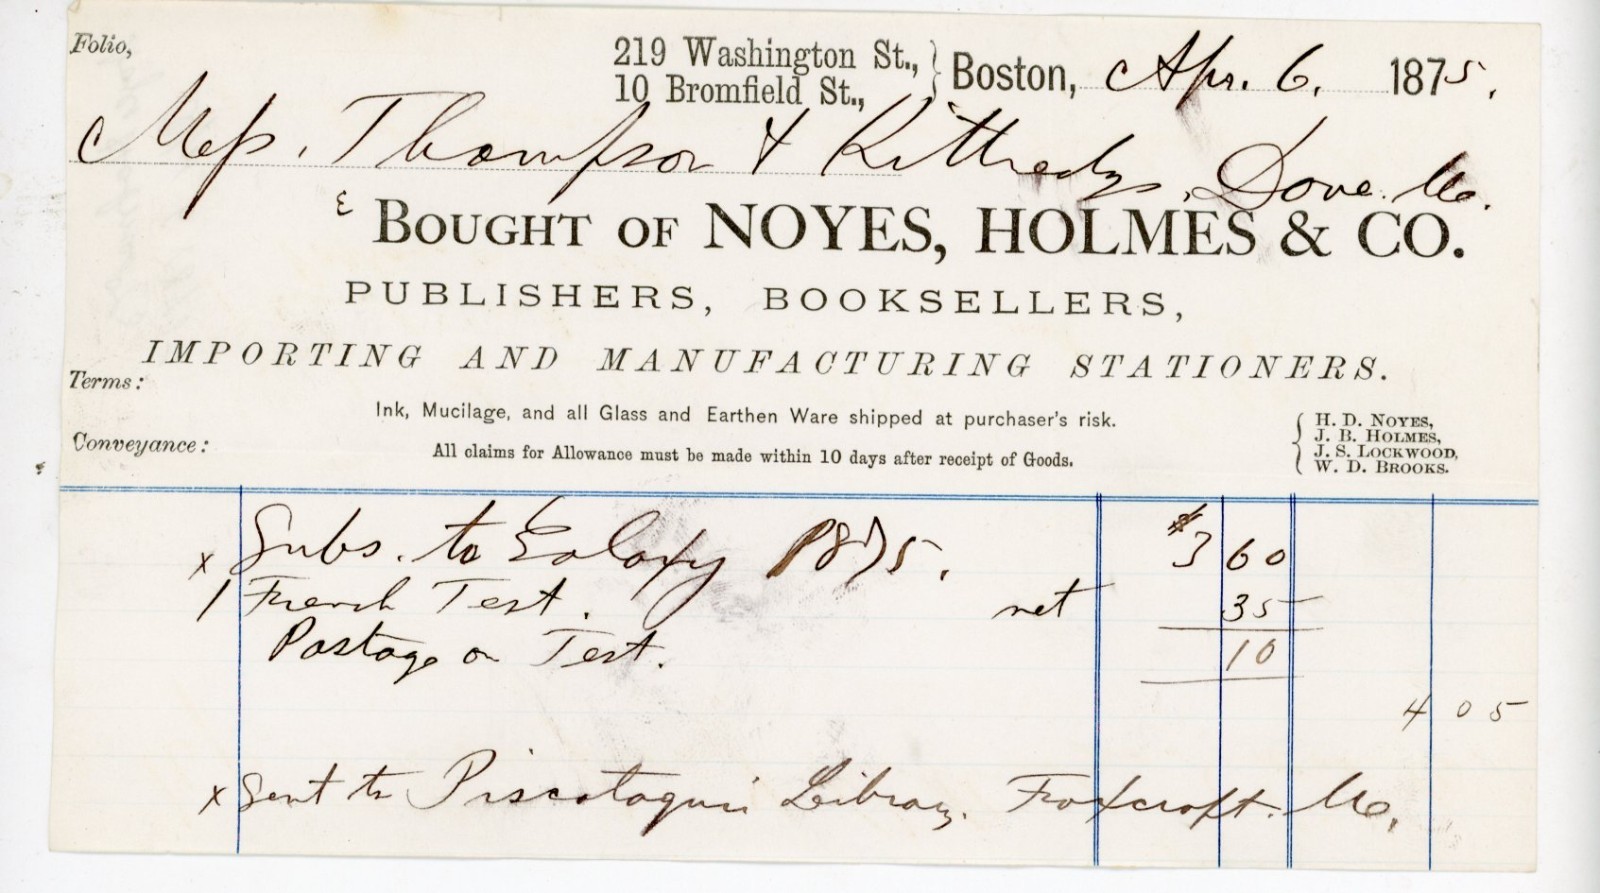 Folio,
219 Washington St.,
10 Bromfield St.,
Boston, Apr. 6. 1875.
Mess. Thompson & Kittredge, Dove. Me.
BOUGHT OF NOYES, HOLMES & CO.
PUBLISHERS, BOOKSELLERS,
IMPORTING AND MANUFACTURING STATIONERS.
Terms:
Ink, Mucilage, and all Glass and Earthen Ware shipped at purchaser's risk.
Conveyance:
All claims for Allowance must be made within 10 days after receipt of Goods.
H. D. NOYES,
J. B. HOLMES,
J. S. LOCKWOOD,
W. D. BROOKS.
x Subs. to Galaxy 1875. $3 60
1 French Test. net 35
Postage on Test. 10
4 05
x Sent to Piscataquis Library. Foxcroft. Me.